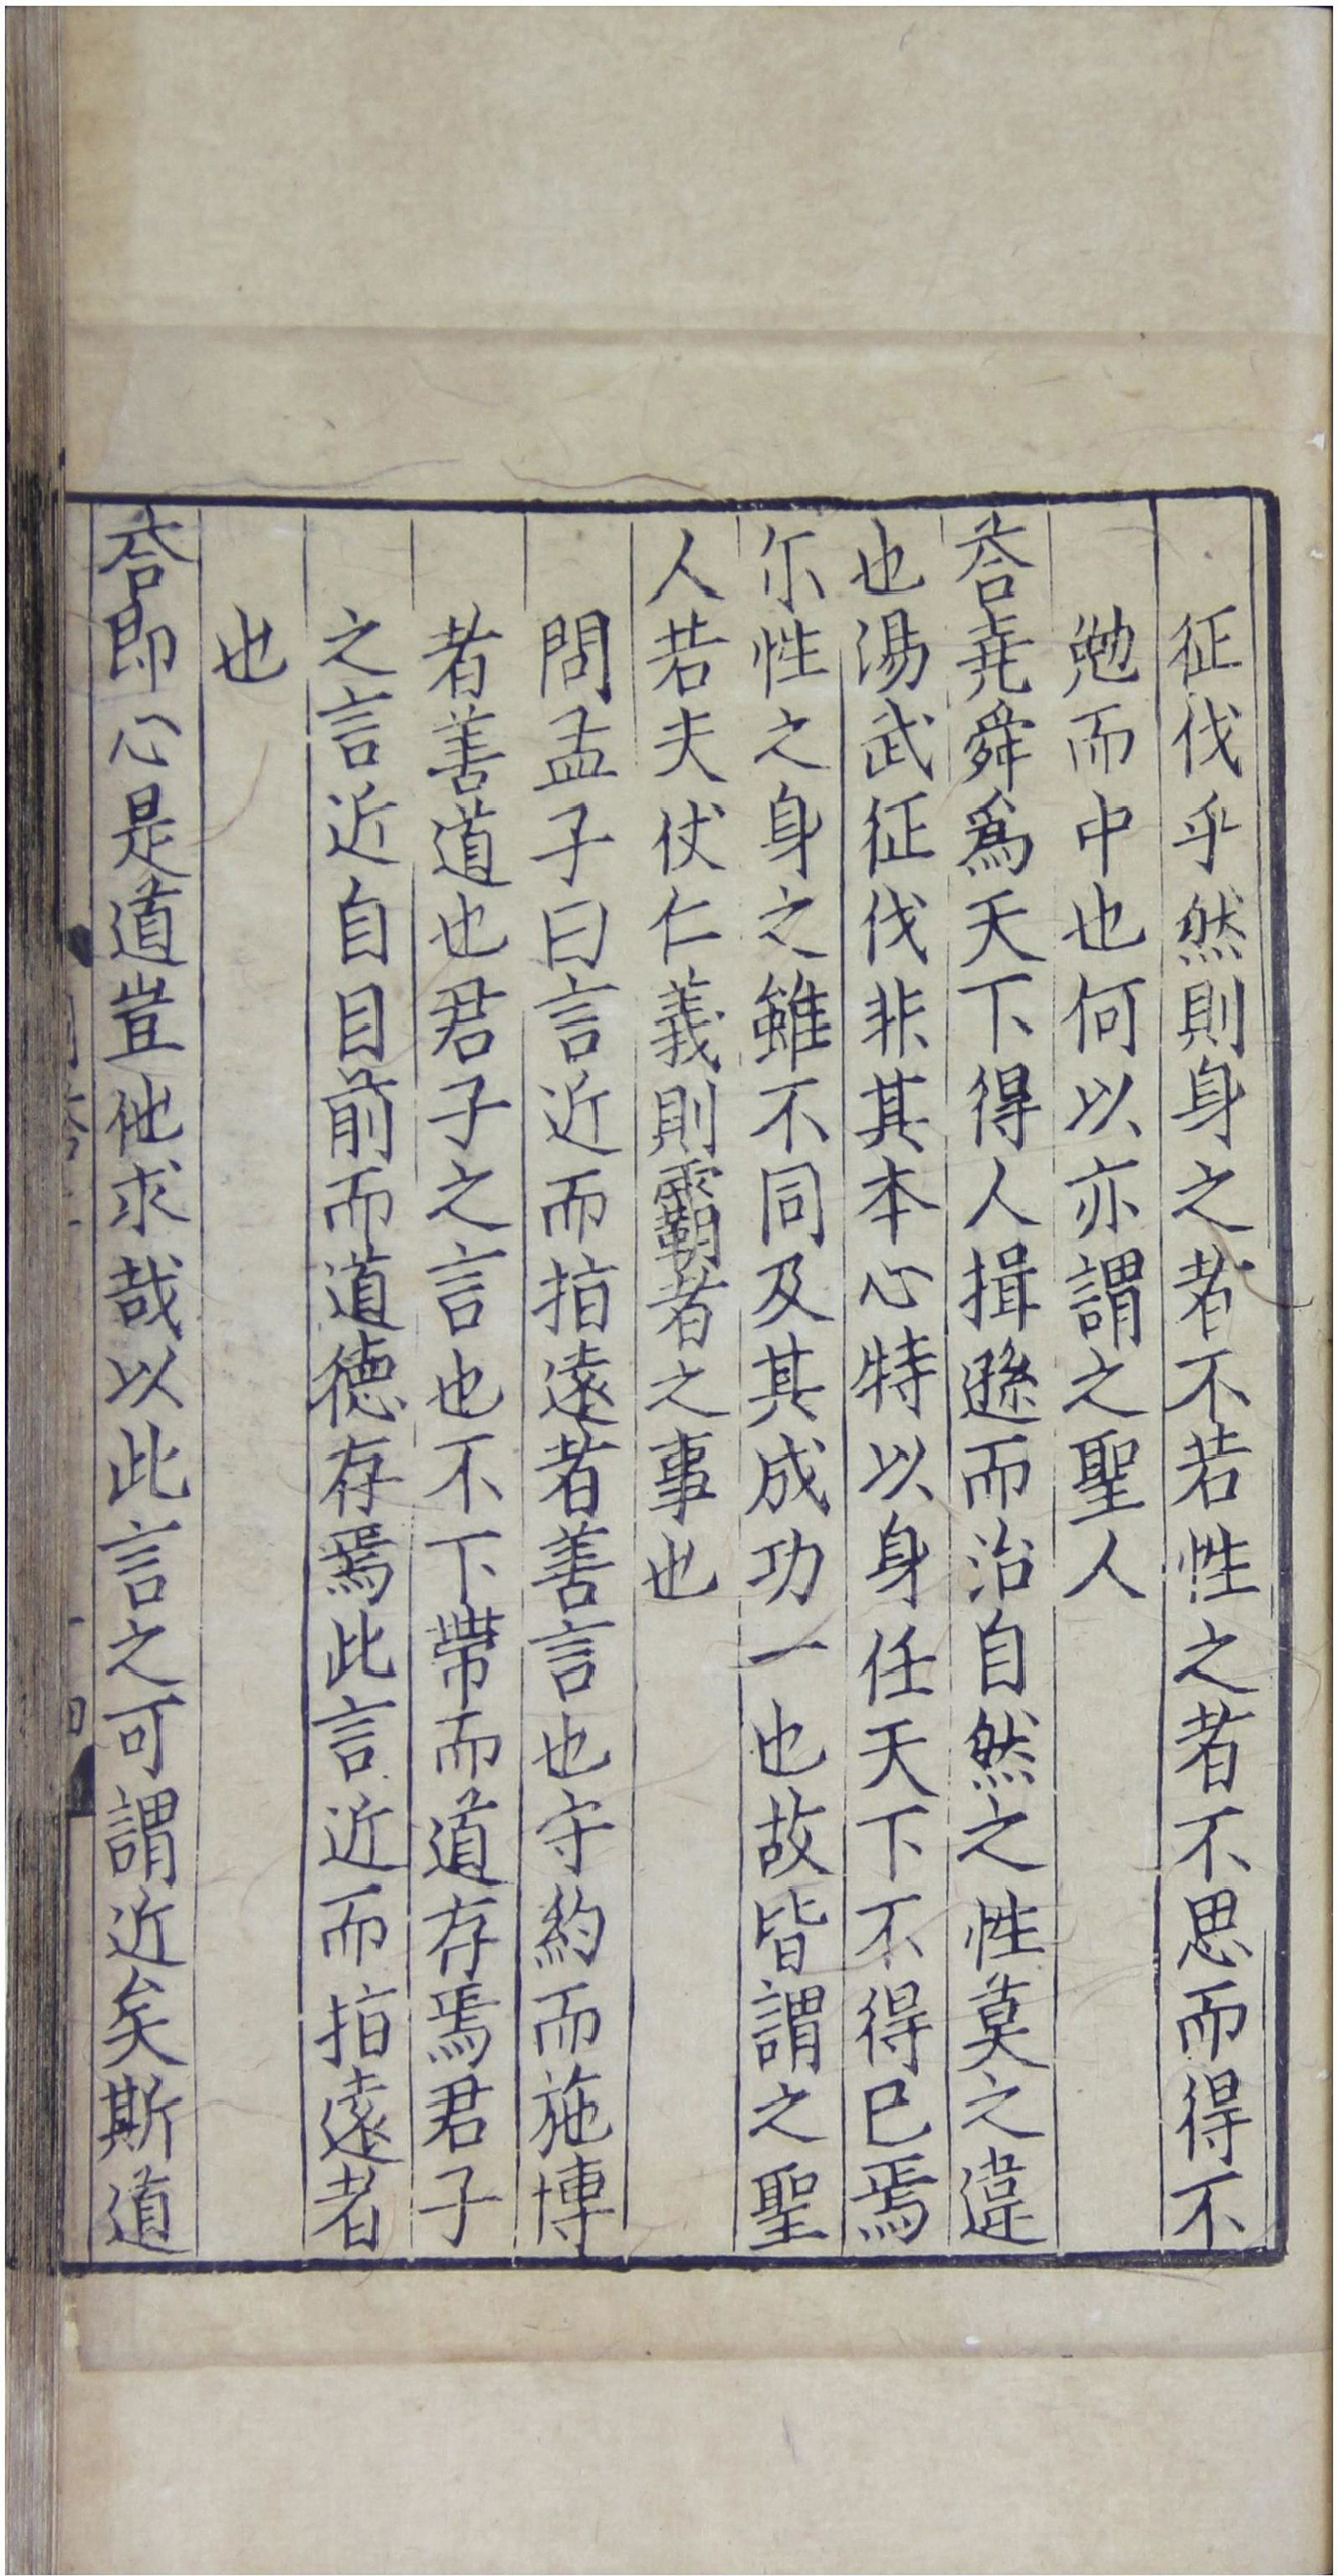 征伐乎然則身之者不若性之者不思而得不
勉而中也何以亦謂之聖人
荅堯舜為天下得人揖遜而治自然之性莫之違
也湯武征伐非其本心特以身任天下不得已焉
尓性之身之雖不同及其成功一也故皆謂之聖
人若夫仗仁義則霸者之事也
問孟子曰言近而指遠者善言也守約而施博
者善道也君子之言也不下帶而道存焉君子
之言近自目前而道德存焉此言近而指遠者
也
荅即心是道豈他求哉以此言之可謂近矣斯道